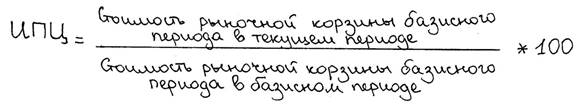 Стоимость рыночной корзины базисного
периода в текущем периоде
ИПЦ = * 100
Стоимость рыночной корзины базисного
периода в базисном периоде